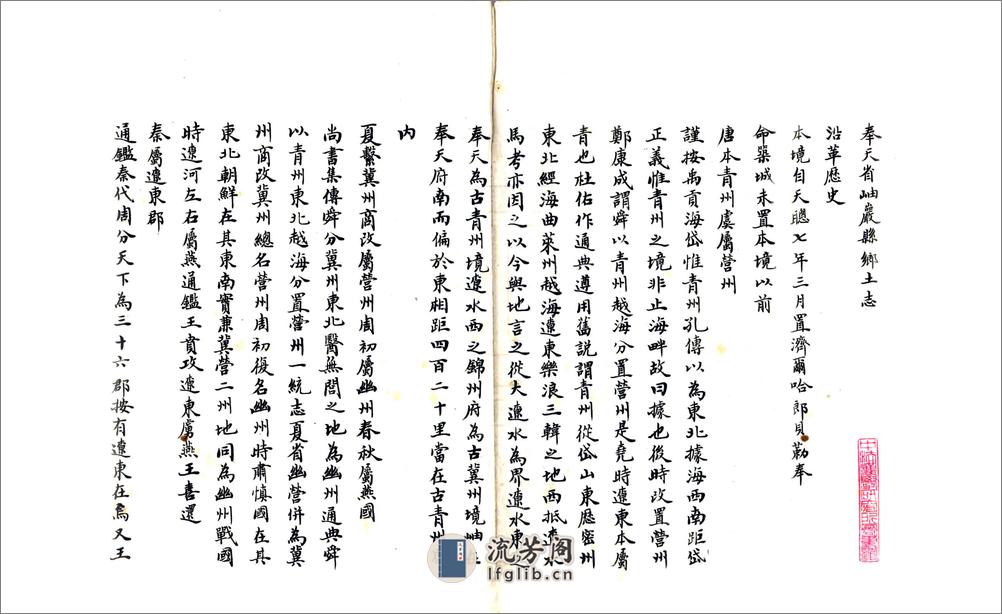 奉天省岫巖縣鄉土志
沿革歷史
本境自天聰七年三月置濟爾哈郎貝勒奉
命築城未置本境以前
唐本青州虞屬營州
謹按禹貢海岱惟青州孔傳以為東北據海西南距岱
正義惟青州之境非止海畔故曰據也後時改置營州
鄭康成謂舜以青州越海分置營州是堯時遼東本屬
青也杜佑作通典遵用舊說謂青州從岱山東歷密州
東北經海曲萊州越海遼東樂浪三韓之地西抵遼水
馬考亦因之以今輿地言之從大遼水為界遼水東
奉天為古青州境遼水西之錦州府為古冀州境岫
奉天府南而偏於東相距四百二十里當在古青州
內
夏繫冀州商改屬營州周初屬幽州春秋屬燕國
尚書集傳舜分冀州東北醫無閭之地為幽州通典舜
以青州東北越海分置營州一統志夏省幽營併為冀
州商改冀州總名營州周初復名幽州時肅慎國在其
東北朝鮮在其東南實兼冀營二州地同為幽州戰國
時遼河左右屬燕通鑑王賁攻遼東虜燕王喜還
秦屬遼東郡
通鑑秦代周分天下為三十六郡按有遼東在焉又王
流芳閣
lfglib.cn